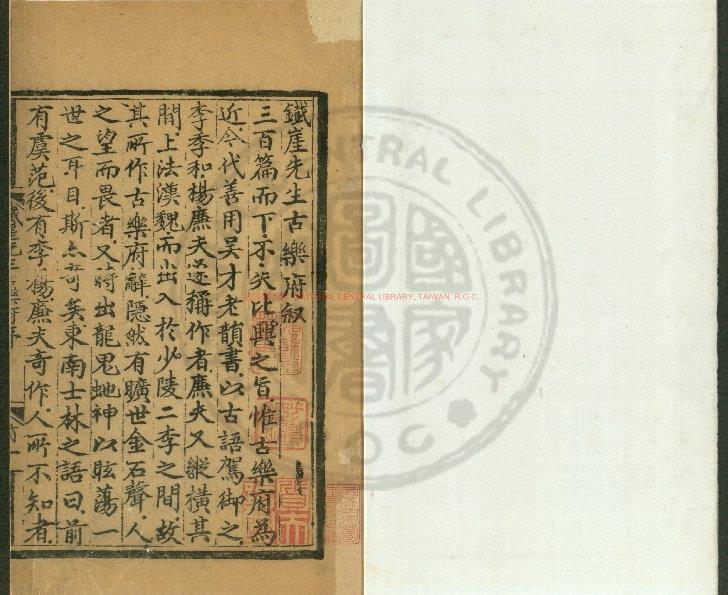 鐵崖先生古樂府叙
三百篇而下不失比興之旨惟古樂府為
近今代善用吴才老韻書以古語駕御之
李季和楊廉夫遂稱作者廉夫又縱横其
間上法漢魏而出入於少陵二李之間故
其所作古樂府辭隱然有曠世金石聲人
之望而畏者又時出龍鬼虵神以眩蕩一
世之耳目斯亦奇矣東南士林之語曰前
有虞范後有李楊廉夫奇作人所不知者
CENTRAL LIBRARY, TAIWAN, R.O.C.
CENTRAL LIBRARY